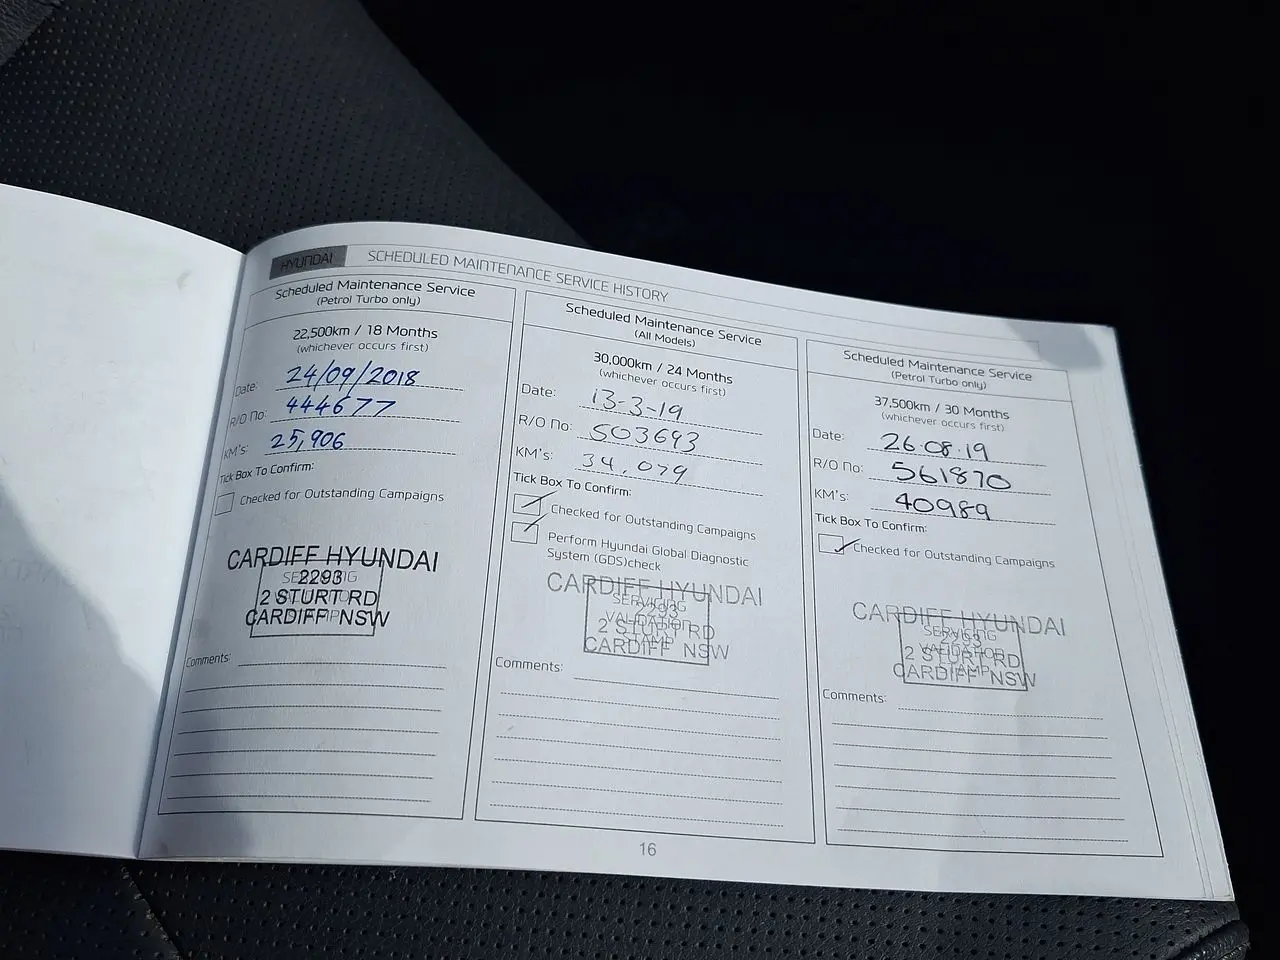 HYUNDAI SCHEDULED MAINTENANCE SERVICE HISTORY
Scheduled Maintenance Service
(Petrol Turbo only)
22,500km / 18 Months
(whichever occurs first)
Date: 24/09/2018
R/O No: 444677
KM's: 25,906
Tick Box To Confirm:
Checked for Outstanding Campaigns
CARDIFF HYUNDAI
SERVICING
2293
2 STURT RD
CARDIFF NSW
Comments:
Scheduled Maintenance Service
(All Models)
30,000km / 24 Months
(whichever occurs first)
Date: 13-3-19
R/O No: 503693
KM's: 34,079
Tick Box To Confirm:
Checked for Outstanding Campaigns
Perform Hyundai Global Diagnostic
System (GDS)check
CARDIFF HYUNDAI
SERVICING
2293
VALIDATION
2 STURT RD
STAMP
CARDIFF NSW
Comments:
Scheduled Maintenance Service
(Petrol Turbo only)
37,500km / 30 Months
(whichever occurs first)
Date: 26.08.19
R/O No: 561870
KM's: 40989
Tick Box To Confirm:
Checked for Outstanding Campaigns
CARDIFF HYUNDAI
SERVICING
2293
VALIDATION
2 STURT RD
STAMP
CARDIFF NSW
Comments:
16